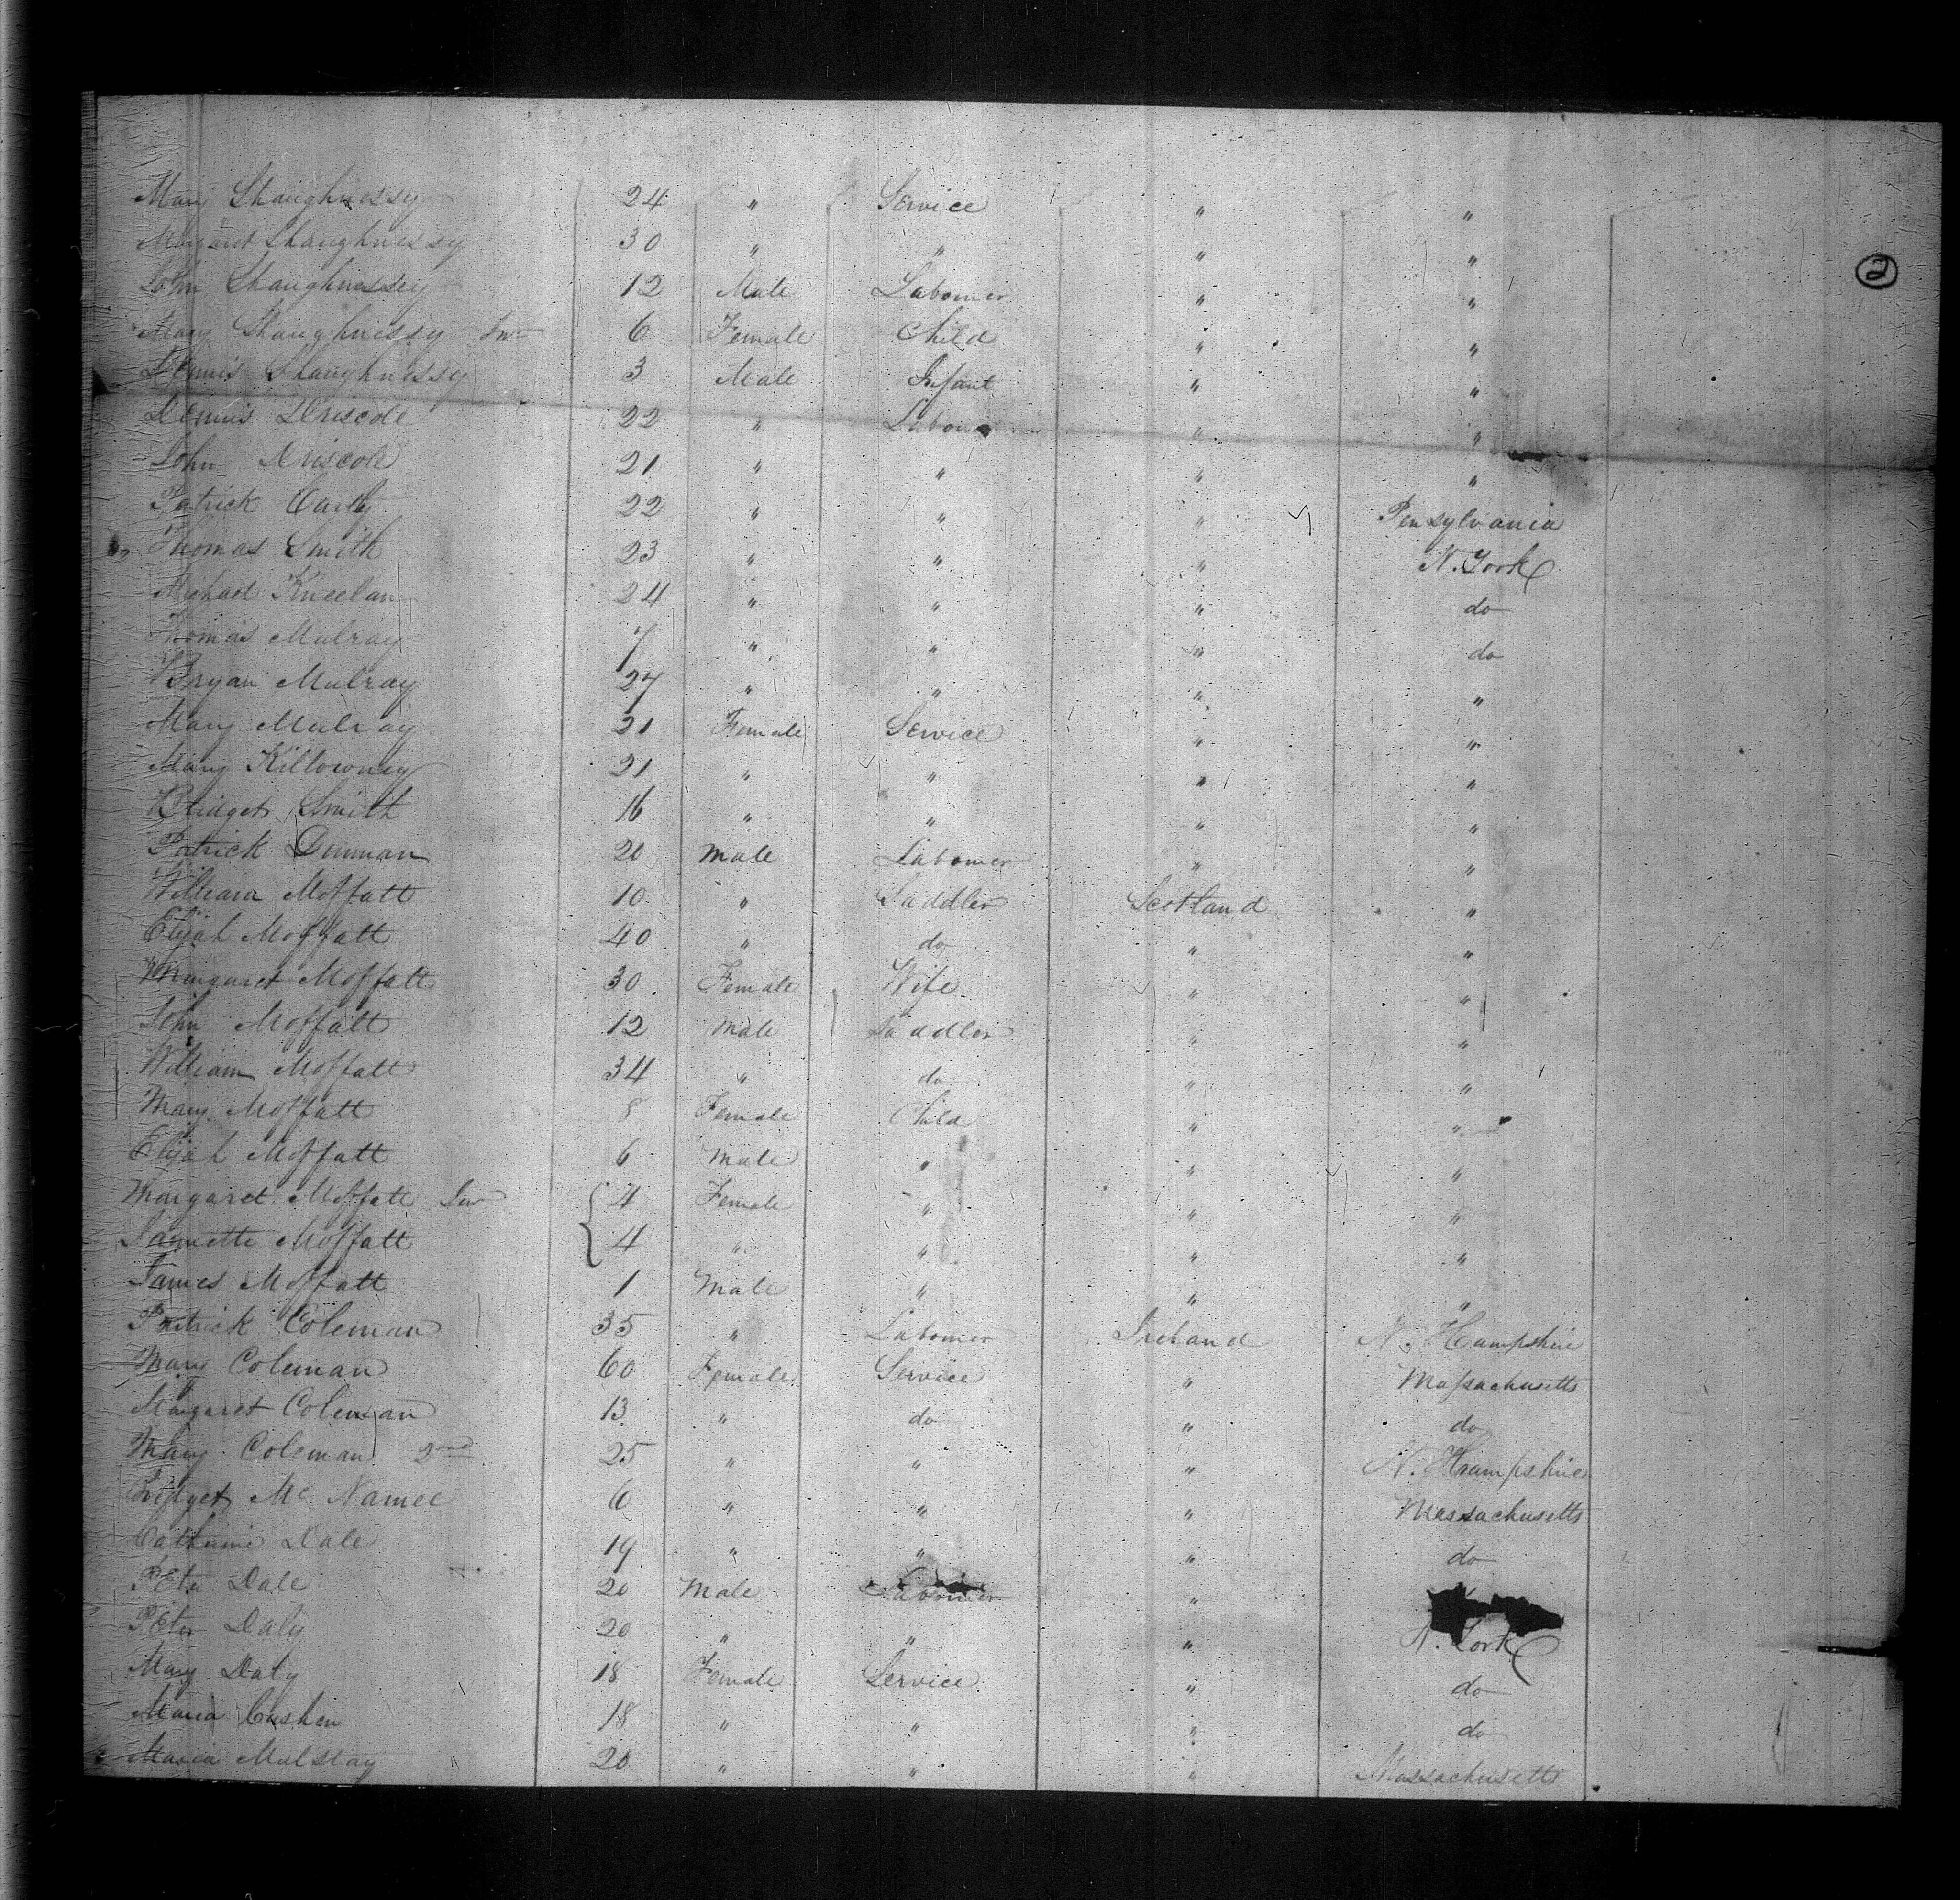 Mary Shaughnessy 24 " Service " "
Margaret Shaughnessy 30 " " " "
John Shaughnessy 12 Male Labourer " "
Mary Shaughnessy Jnr 6 Female Child " "
Dennis Shaughnessy 3 Male Infant " "
Dennis Driscole 22 " Labour " "
John Driscole 21 " " " "
Patrick 22 " " " Pensylvania
Thomas Smith 23 " " " N. York
Michael Kneelan 24 " " " do
Thomas Mulray 7 " " " do
Bryan Mulray 27 " " " "
Mary Mulray 21 Female Service " "
Mary Killowney 21 " " " "
Bridget Smith 16 " " " "
Patrick 20 Male Labourer " "
William Moffatt 10 " Saddler Scotland "
Elijah Moffatt 40 " do " "
Margaret Moffatt 30 Female Wife " "
John Moffatt 12 Male Saddler " "
William Moffatt 34 " do " "
Mary Moffatt 8 Female Child " "
Elijah Moffatt 6 Male " " "
Margaret Moffatt Jnr { 4 Female " " "
Jannette Moffatt 4 " " " "
James Moffatt 1 Male " " "
Patrick Coleman 35 " Labourer Ireland N. Hampshire
Mary Coleman 60 Female Service " Massachusetts
Margaret Coleman 13 " do " do
Mary Coleman 2nd 25 " " " N. Hampshire
Bridget Mc Namee 6 " " " Massachusetts
Catherine Dale 19 " " " do
Peter Dale 20 Male Labourer "
Peter Daly 20 " " " N. York
Mary Daly 18 Female Service " do
Maria Cushen 18 " " " do
Maria Mulstay 20 " " " Massachusetts
2